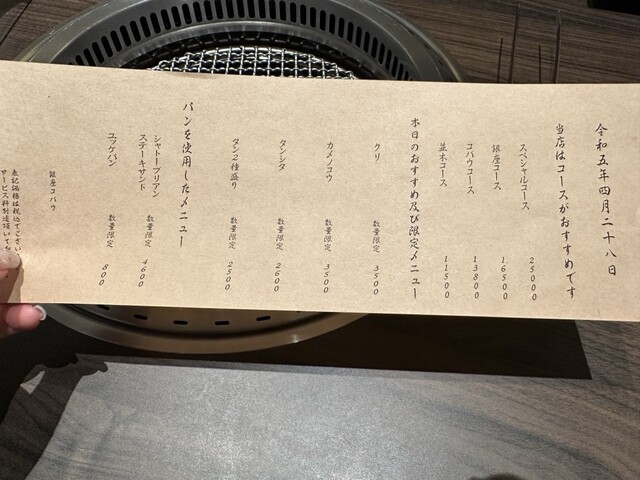 令和五年四月二十八日
当店はコースがおすすめです
スペシャルコース 25000
銀座コース 16500
コバウコース 13800
並木コース 11500
本日のおすすめ及び限定メニュー
クリ 数量限定 3500
カメノコウ 数量限定 3500
タンシタ 数量限定 2600
タン2種盛り 数量限定 2500
パンを使用したメニュー
シャトーブリアン
ステーキサンド 数量限定 4600
ユッケパン 数量限定 800
銀座コバウ
表記価格は税込でござい
サービス料別途頂いて